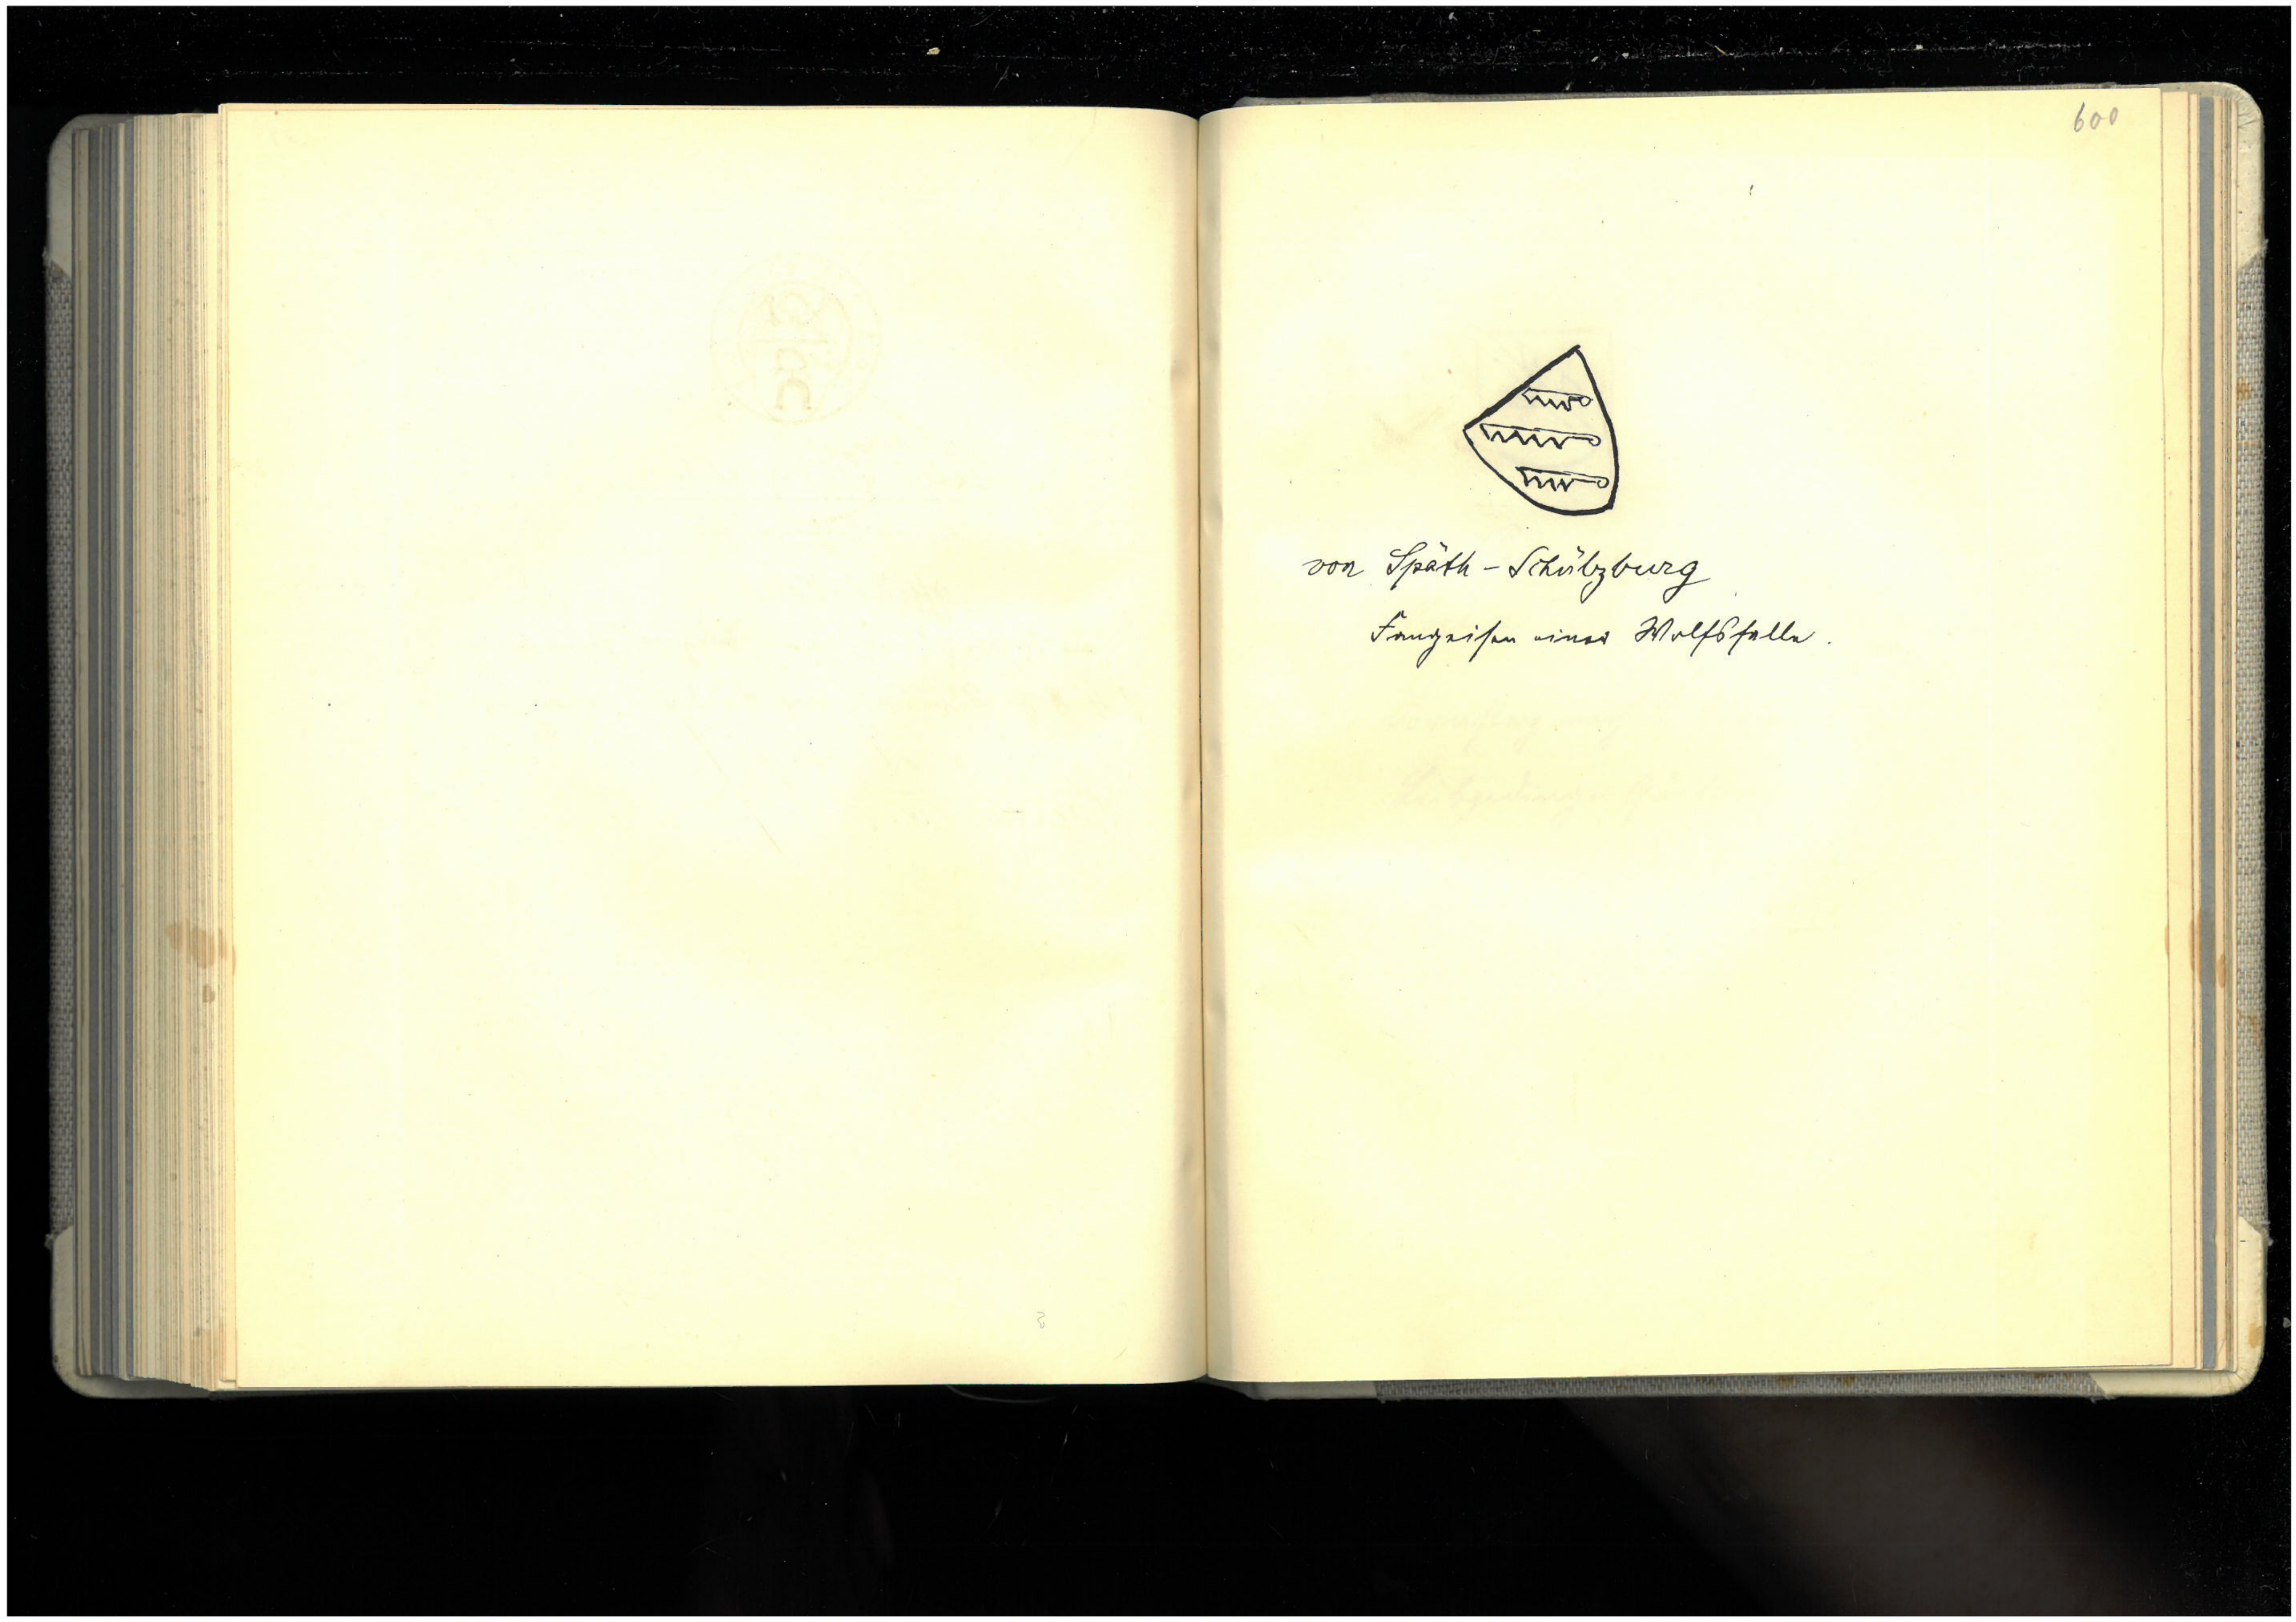 600
von Späth - Schülzburg
Fangeisen einer Wolfsfalle.